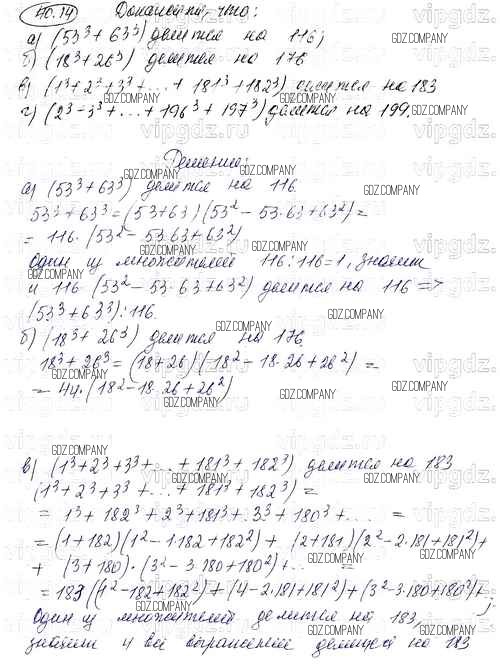 40.14 Докажите, что:
а) (53³ + 63³) делится на 116;
б) (18³ + 26³) делится на 176
в) (1³ + 2³ + 3³ + ... + 181³ + 182³) делится на 183
г) (2³ + 3³ + ... + 196³ + 197³) делится на 199.
Решение:
а) (53³ + 63³) делится на 116
53³ + 63³ = (53 + 63)(53² - 53·63 + 63²) =
= 116·(53² - 53·63 + 63²)
Один из множителей 116:116=1, значит
и 116·(53² - 53·63 + 63²) делится на 116 =>
(53³ + 63³) ⋮ 116.
б) (18³ + 26³) делится на 176
18³ + 26³ = (18 + 26)(18² - 18·26 + 26²) =
= 44·(18² - 18·26 + 26²)
в) (1³ + 2³ + 3³ + ... + 181³ + 182³) делится на 183
(1³ + 2³ + 3³ + ... + 181³ + 182³) =
= 1³ + 182³ + 2³ + 181³ + 3³ + 180³ + ... =
= (1 + 182)(1² - 1·182 + 182²) + (2 + 181)(2² - 2·181 + 181²) +
+ (3 + 180)·(3² - 3·180 + 180²) + ... =
= 183 (1² - 182 + 182²) + (4 - 2·181 + 181²) + (3² - 3·180 + 180²) + ...;
Один из множителей делится на 183,
значит и всё выражение делится на 183